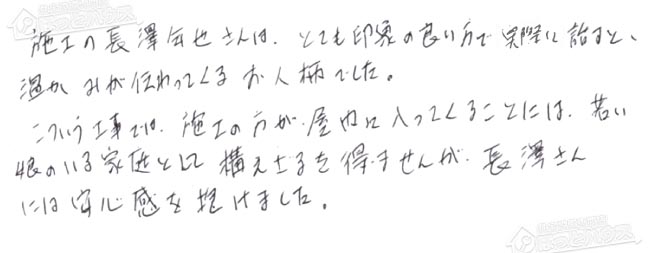 施工の長澤気也さんは、とても印象の良い方で実際に話すと、
温かみが伝わってくるお人柄でした。
こういう工事では、施工の方が屋内に入ってくることには、若い
娘のいる家庭として構えざるを得ませんが、長澤さん
には安心感を抱けました。